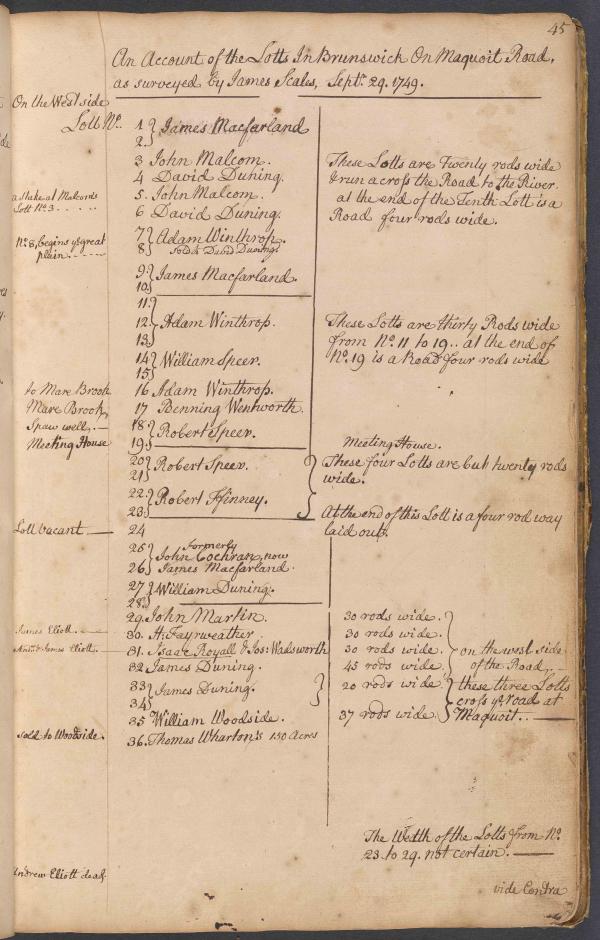 45
An Account of the Lotts In Brunswick On Maquoit Road,
as surveyed by James Scales, Septr. 29. 1749.
On the West side
Lott No.
1 } James Macfarland
2.
3 John Malcom.
4 David Duning.
These Lotts are Twenty rods wide
& run across the Road to the River.
at the end of the Tenth Lott is a
Road four rods wide.
a stake at Malcoms
Lott No 3 . . . . .
5. John Malcom.
6 David Duning.
No. 8, begins ye great
plain. - - - -
7 } Adam Winthrop.
8 Sold to David Duning.
9 } James Macfarland.
10
11.
12. } Adam Winthrop.
13
These Lotts are thirty Rods wide
from No. 11 to 19.. at the end of
No. 19 is a Road four rods wide
14 } William Speer.
15
to Mare Brook 16 Adam Winthrop.
Mare Brook, 17 Benning Wentworth.
Spaw well. — 18. } Robert Speer.
Meeting House 19.
Meeting House.
20 } Robert Speer.
21
These four Lotts are but twenty rods
wide.
22. } Robert Finney.
23.
At the end of this Lott is a four rod way
laid out.
Lott vacant — 24
25 } Formerly
John Cochran, now
26. James Macfarland.
27 } William Duning.
28.
29. John Martin. 30 rods wide.
James Eliott. — 30. H. Fayrweather 30 rods wide.
Andw. & James Eliott. 31. Isaac Royall & Jos: Wadsworth 30 rods wide } on the west side
32 James Duning. 45 rods wide of the Road. —
33 } James Duning. } 20 rods wide } these three Lotts
34 cross ye. road at
35 William Woodside. 37 rods wide. Maquoit.. —
sold to Woodside. 36. Thomas Wharton's 150 Acres
The Wedth of the Lotts from No.
23. to 29. not certain. —
Andrew Eliott
vide Contra